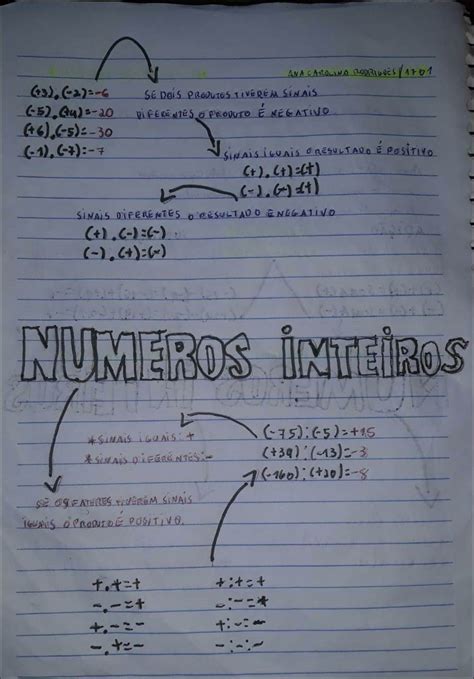 ANA CAROLINA RODRIGUES/1701
(+3).(-2)=-6
(-5).(+4)=-20
(+6).(-5)=-30
(-1).(-7)=-7
SE DOIS PRODUTOS TIVEREM SINAIS
DIFERENTES O PRODUTO É NEGATIVO
SINAIS IGUAIS O RESULTADO É POSITIVO
(+).(+)=(+)
(-).(-)=(+)
SINAIS DIFERENTES O RESULTADO É NEGATIVO
(+).(-)=(-)
(-).(+)=(-)
NUMEROS INTEIROS
*SINAIS IGUAIS:+
*SINAIS DIFERENTES:-
(-75):(-5)=+15
(+39):(-13)=-3
(-160):(+20)=-8
SE OS FATORES TIVEREM SINAIS
IGUAIS O PRODUTO É POSITIVO.
+.+=+
-.-=+
+.-=-
-.+=-
+:+=+
-:-=+
+:-:-
-:-:-